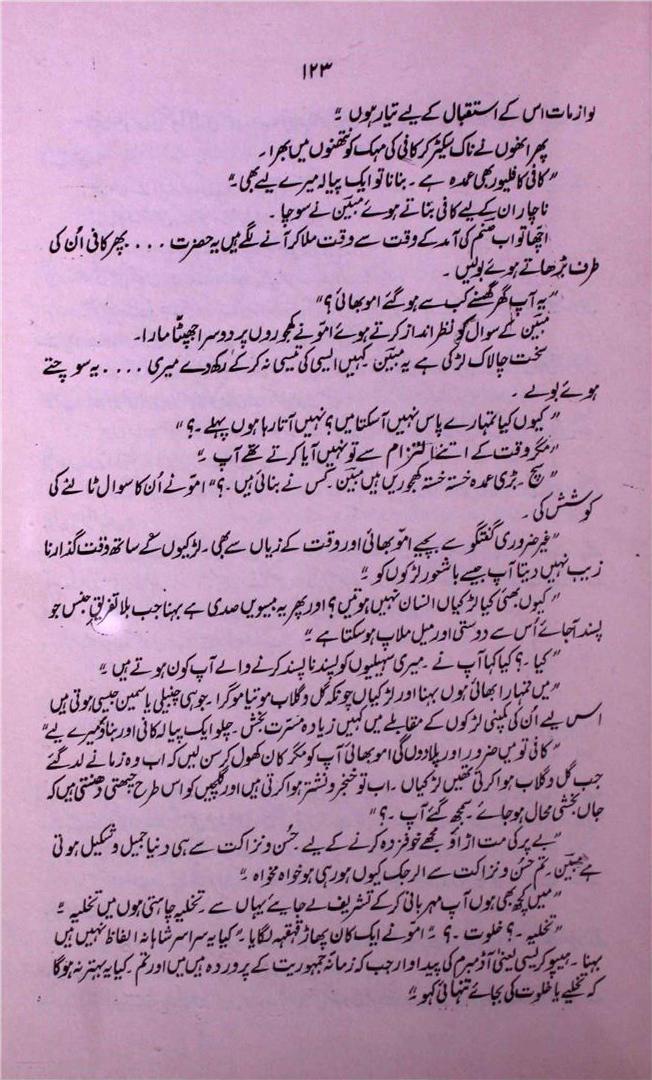 ۱۲۳
لوازمات اس کے استقبال کے لیے تیار ہوں ۔"
پھر انھوں نے ناک سکیڑ کر کافی کی مہک کو نتھنوں میں بھرا۔
"کافی کا فلیور بھی عمدہ ہے ۔ بنانا تو ایک پیالہ میرے لیے بھی ۔"
ناچار ان کے لیے کافی بناتے ہوئے مبین نے سوچا ۔
اچھا تو اب صنم کی آمد کے وقت سے وقت ملا کر آنے لگے ہیں یہ حضرت .... پھر کافی اُن کی
طرف بڑھاتے ہوئے بولیں ۔
"یہ آپ گھر گھسنے کب سے ہو گئے امو بھائی ؟"
مبین کے سوال کو نظر انداز کرتے ہوئے امو نے کھجوروں پر دوسرا جھپٹا مارا۔
سخت چالاک لڑکی ہے یہ مبین ۔ کہیں ایسی کی تیسی نہ کر کے رکھ دے میری .... یہ سوچتے
ہوئے بولے ۔
"کیوں کیا تمہارے پاس نہیں آ سکتا میں ؟ نہیں آتا رہا ہوں پہلے ۔؟"
"مگر وقت کے اتنے التزام سے تو نہیں آیا کرتے تھے آپ ۔"
"سچ ۔ بڑی عمدہ خستہ خستہ کھجوریں ہیں مبین ۔ کس نے بنائی ہیں ۔؟" امو نے اُن کا سوال ٹالنے کی
کوشش کی ۔
"غیر ضروری گفتگو سے بچیے امو بھائی اور وقت کے زیاں سے بھی ۔ لڑکیوں کے ساتھ وقت گذارنا
زیب نہیں دیتا آپ جیسے باشعور لڑکوں کو ۔"
"کیوں بھئی کیا لڑکیاں انسان نہیں ہوتیں ؟ اور پھر یہ بیسویں صدی ہے بہنا جب بلا تفریقِ جنس جو
پسند آجائے اُس سے دوستی اور میل ملاپ ہو سکتا ہے ۔"
"کیا ۔؟ کیا کہا آپ نے ۔ میری سہیلیوں کو پسند نا پسند کرنے والے آپ کون ہوتے ہیں ۔"
"میں تمہارا بھائی ہوں بہنا اور لڑکیاں چونکہ گل و گلاب موتیا موگرا ۔ جوہی چنبیلی یاسمین جیسی ہوتی ہیں
اس لیے اُن کی کمپنی لڑکوں کے مقابلے میں کہیں زیادہ مسرت بخش ۔ چلو ایک پیالہ کافی اور بناؤ میرے لیے"
"کافی تو میں ضرور اور پلا دوں گی امو بھائی آپ کو مگر کان کھول کر سن لیں کہ اب وہ زمانے لد گئے
جب گل و گلاب ہوا کرتی تھیں لڑکیاں ۔ اب تو خنجر و نشتر ہوا کرتی ہیں اور گلچیں کو اس طرح چبھتی دھنستی ہیں کہ
جاں بخشی محال ہو جائے ۔ سمجھ گئے آپ ۔؟"
"بے پر کی مت اڑاؤ مجھے خوفزدہ کرنے کے لیے ۔ حُسن و نزاکت سے ہی دنیا جمیل و شکیل ہوتی
ہے مبین ۔ تم حُسن و نزاکت سے الرجک کیوں ہو رہی ہو خواہ مخواہ ۔"
"میں کچھ بھی ہوں آپ مہربانی کر کے تشریف لے جایئے یہاں سے ۔ تخلیہ چاہتی ہوں میں تخلیہ ۔"
"تخلیہ ۔؟ خلوت ۔؟" امو نے ایک کان پھاڑ قہقہہ لگایا ۔ "کیا یہ سراسر شاہانہ الفاظ نہیں ہیں
بہنا ۔ ہیپوکریسی یعنی آڈمبرم کی پیداوار جب کہ زمانہ جمہوریت کے پروردہ ہیں میں اور تم ۔ کیا یہ بہتر نہ ہو گا
کہ تخلیے یا خلوت کی بجائے تنہائی کہو ۔"